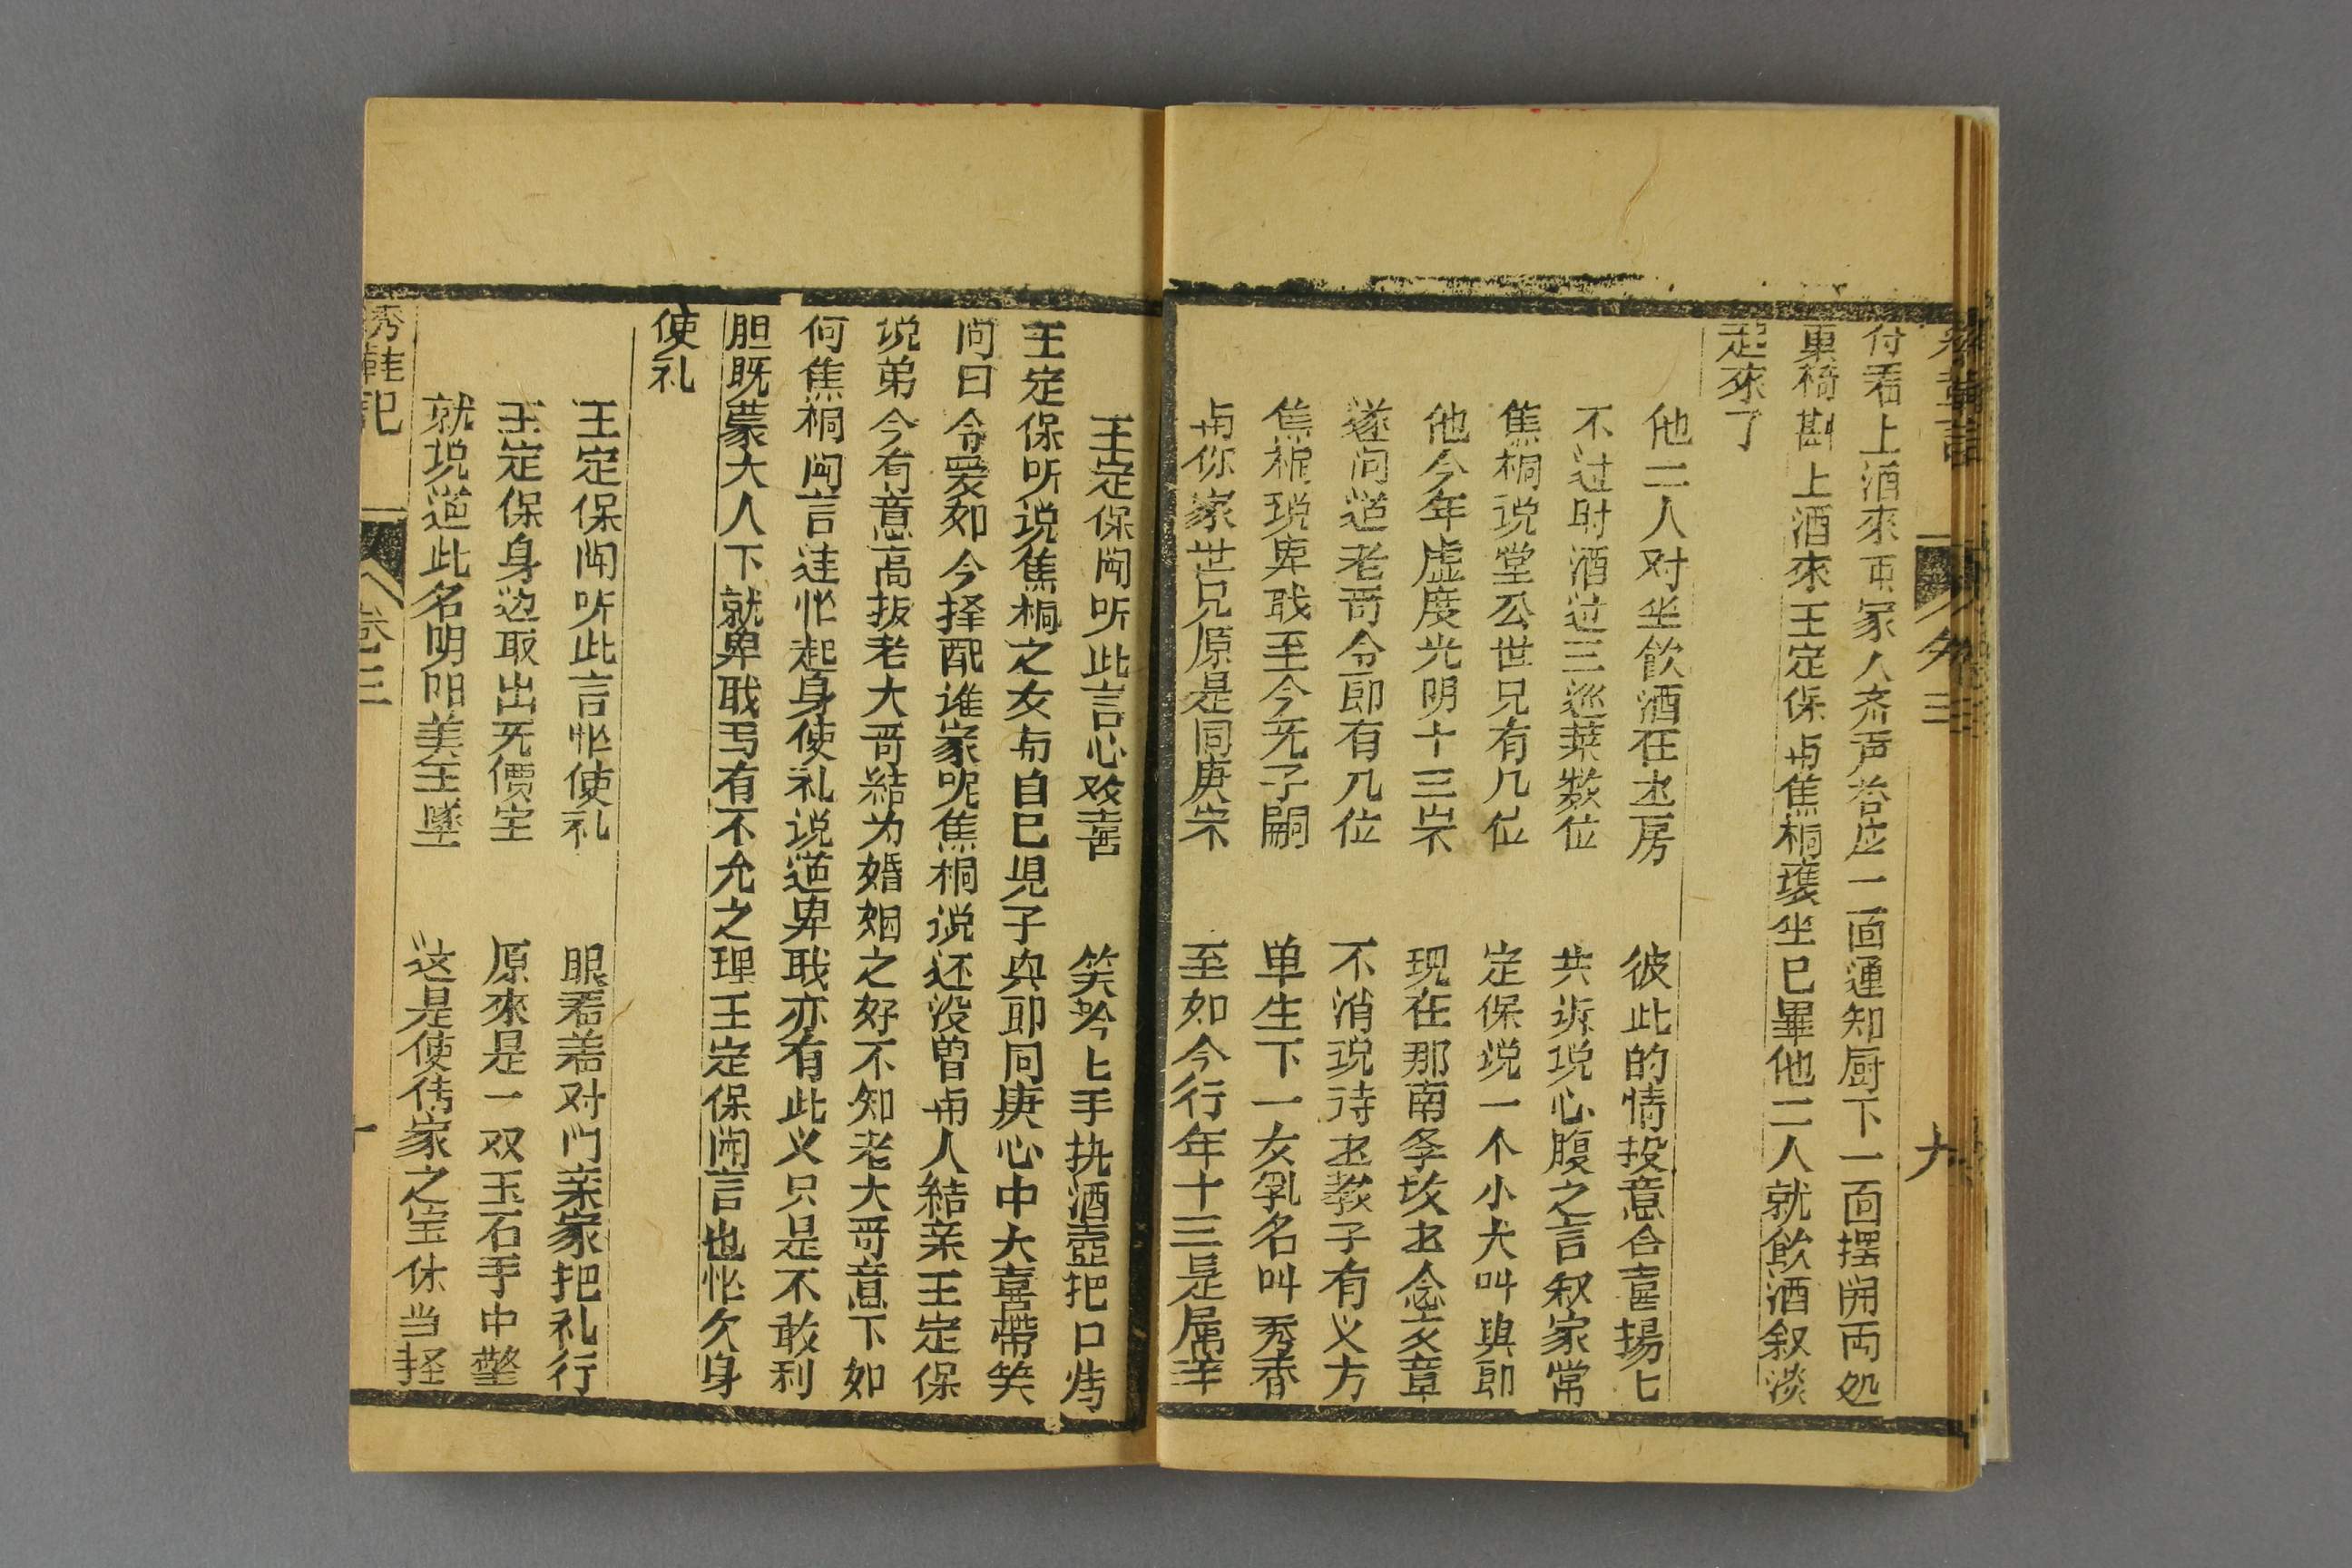 付看上酒來両家人齐声荅应一面通知厨下一面摆開両処
東椅斟上酒來王定保与焦桐讓坐已畢他二人就飲酒叙淡
起來了
他二人对坐飲酒在上房 彼此的情投意合喜揚匕
不过时酒过三巡菜数位 共诉说心腹之言叙家常
焦桐说堂公世兄有几位 定保说一个小犬叫與郎
他今年虚度光明十三岁 现在那南季坟上念文章
遂问道老哥令郎有几位 不消说待上教子有义方
焦桐说卑戝至今无子嗣 单生下一女乳名叫秀香
与你家世兄原是同庚岁 至如今行年十三是属羊
王定保闻听此言心欢喜 笑吟匕手执酒壺把口烤
王定保听说焦桐之女与自己児子與郎同庚心中大喜帶笑
问曰令爱如今择配谁家呢焦桐说还没曽与人結亲王定保
说弟今有意高扳老大哥結为婚姻之好不知老大哥意下如
何焦桐闻言迬忙起身使礼说道卑戝亦有此义只是不敢利
胆既蒙大人下就卑戝丐有不允之理王定保闻言也忙欠身
使礼
王定保闻听此言忙使礼 眼看着对门亲家把礼行
王定保身边取出无價宝 原來是一双玉石手中擎
就说道此名明阳美玉墜 这是使传家之宝休当挃
秀鞋记 卷三